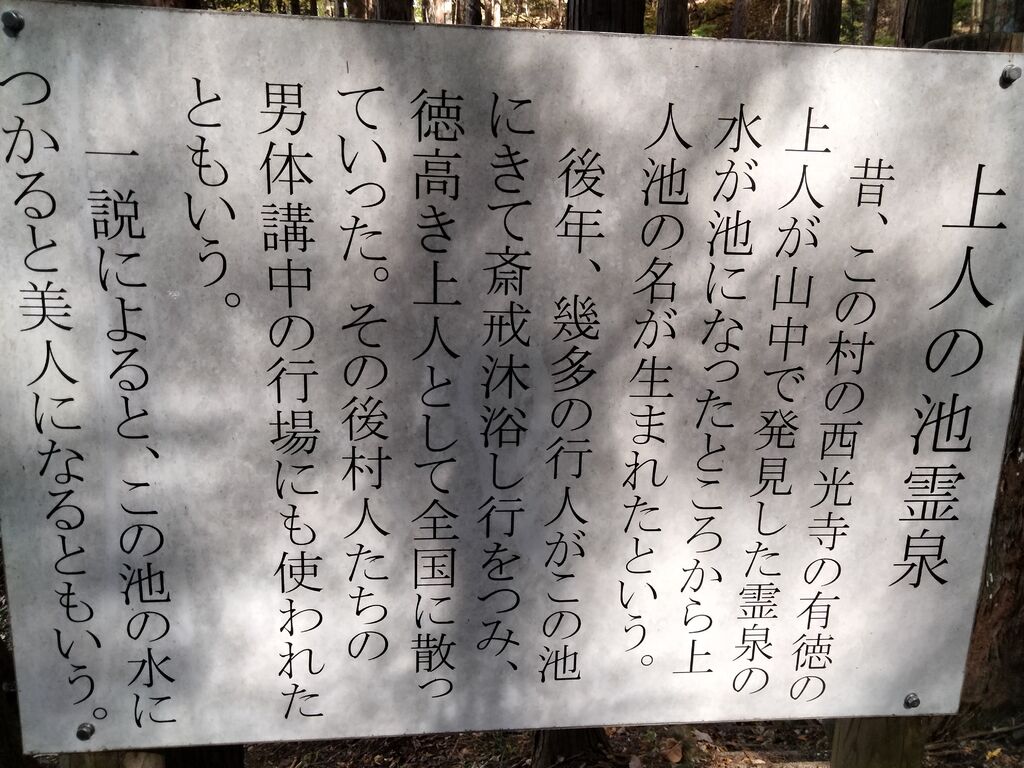 上人の池霊泉
昔、この村の西光寺の有徳の
上人が山中で発見した霊泉の
水が池になったところから上
人池の名が生まれたという。
後年、幾多の行人がこの池
にきて斎戒沐浴し行をつみ、
徳高き上人として全国に散っ
ていった。その後村人たちの
男体講中の行場にも使われた
ともいう。
一説によると、この池の水に
つかると美人になるともいう。